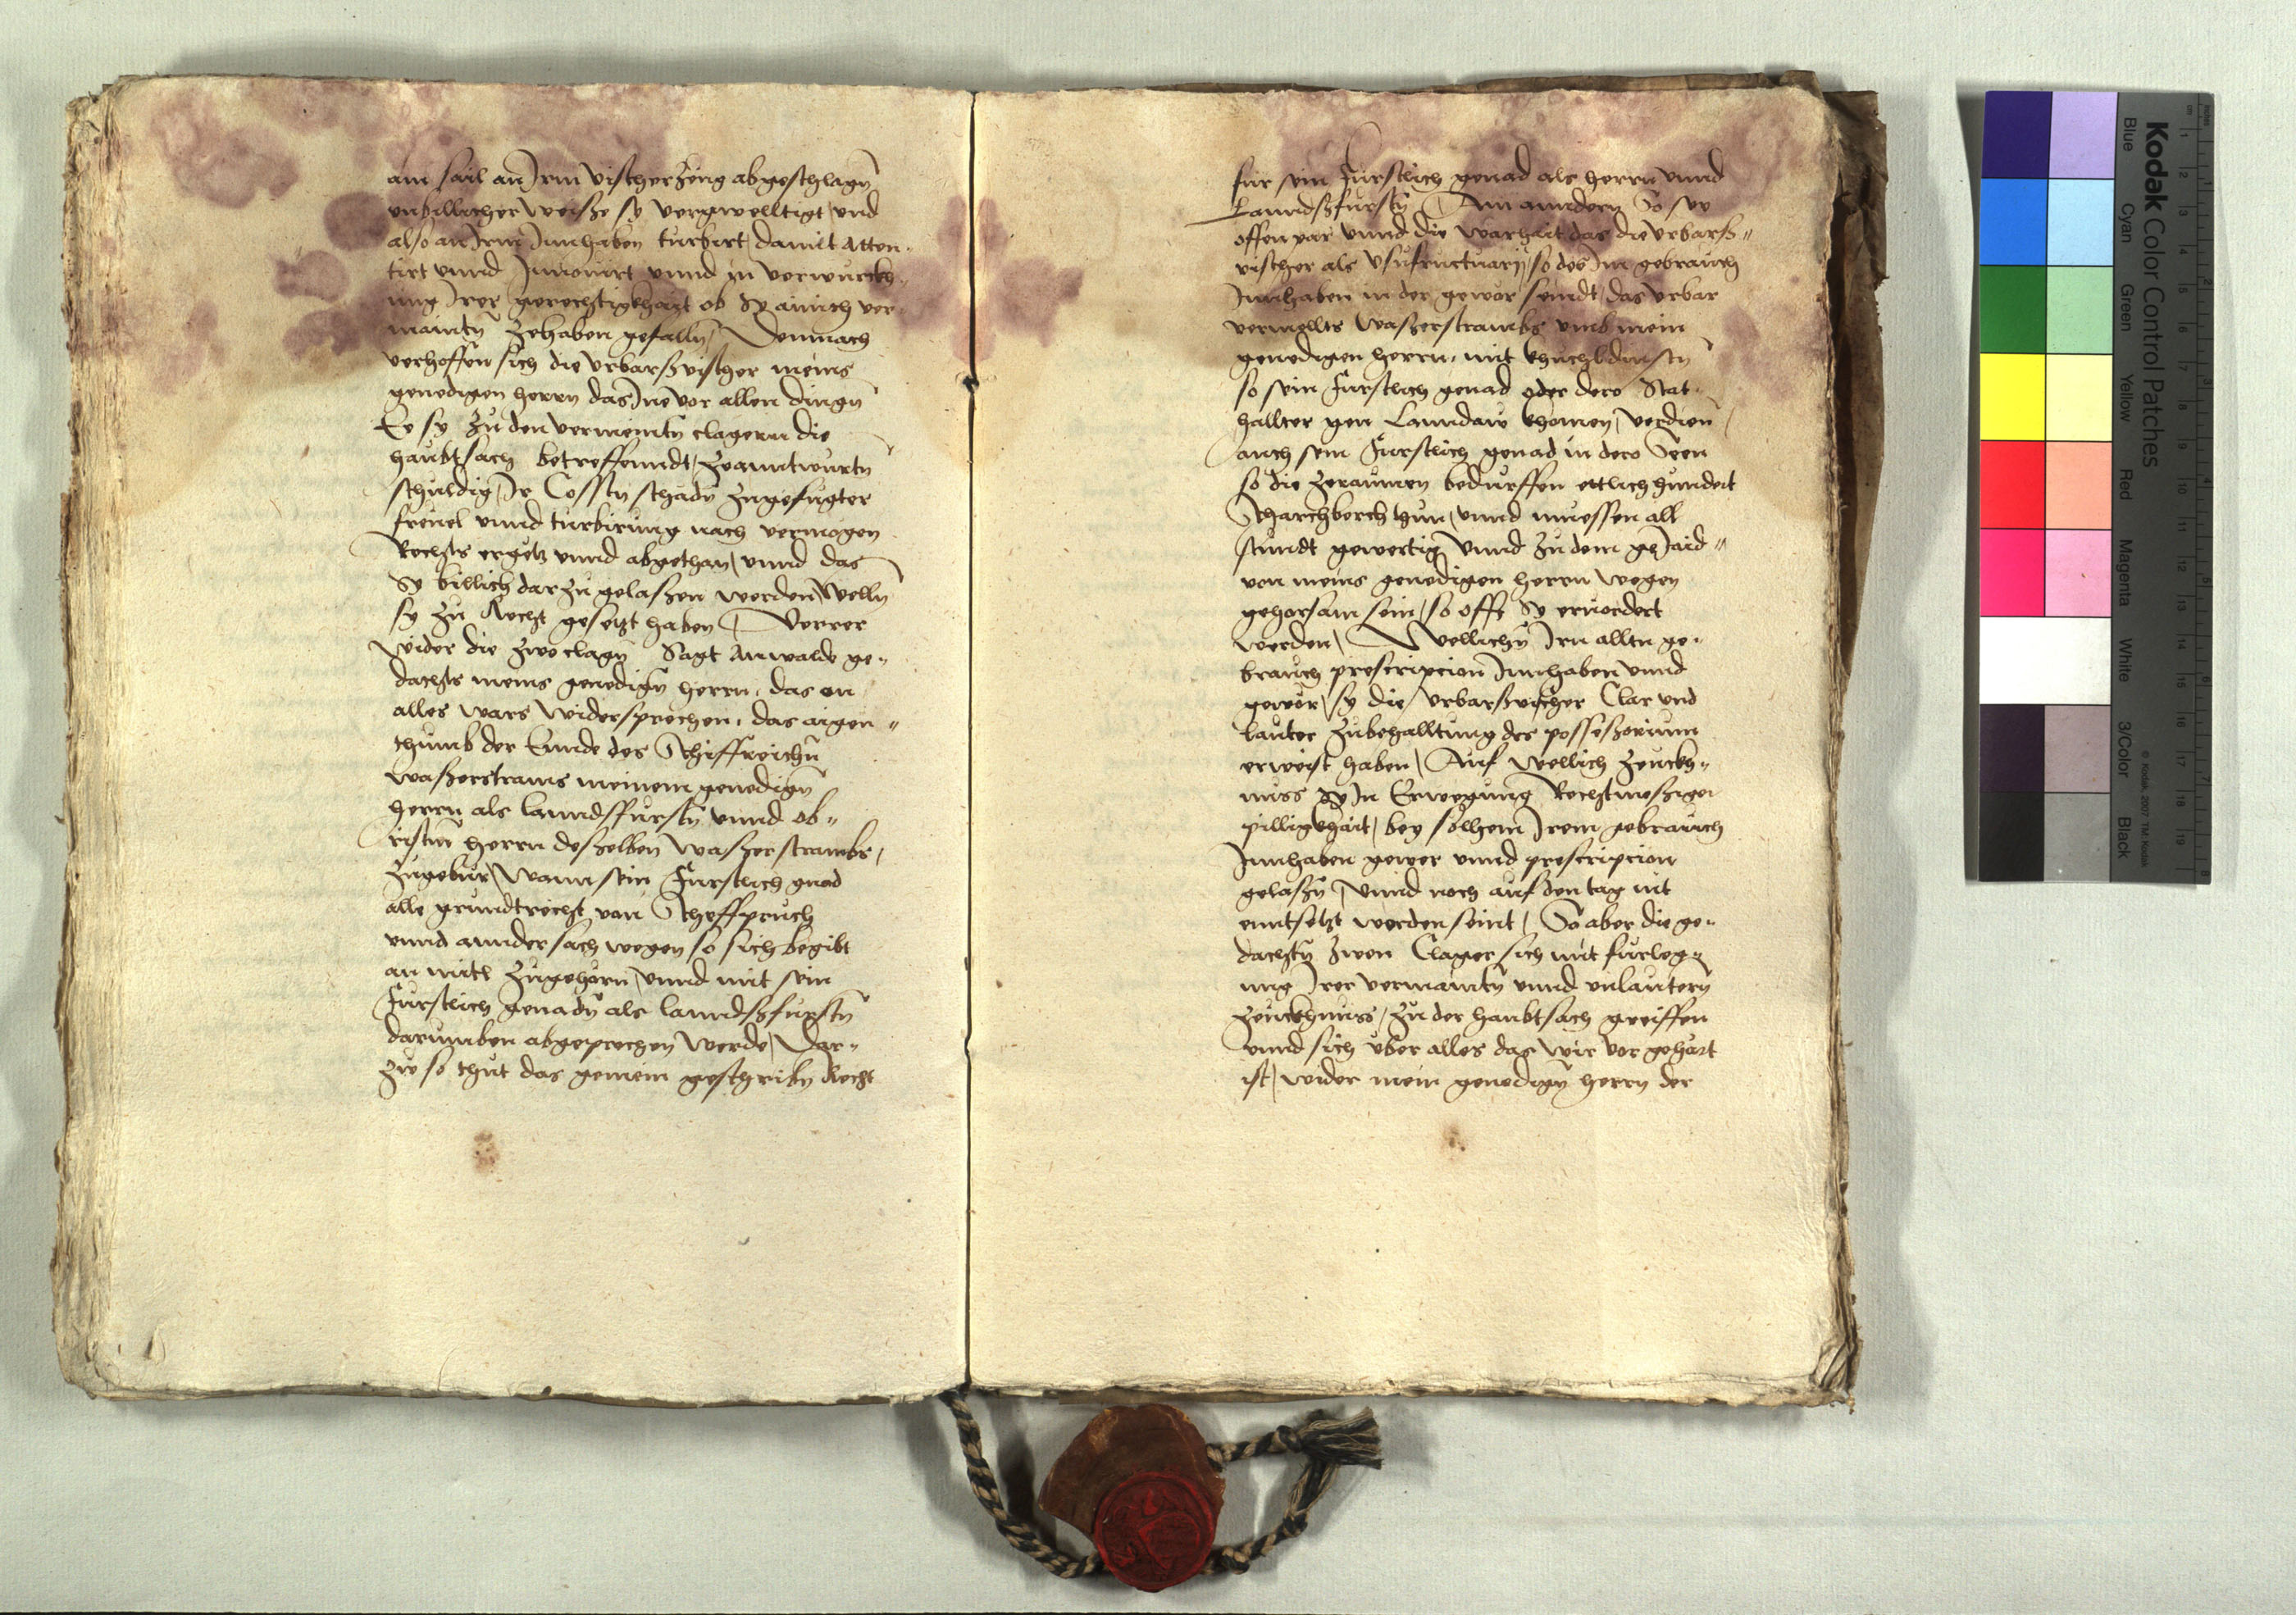 ain sail an Irm vischerzeug abgeschlagn
unbillicher weise sy vergwelltigt und
also an Irm Innhaben turbirt damit atten=
tirt unnd Innovirt unnd in verwurckh=
ung Irer gerechtigkhait ob Sy ainich ver=
maintn zehaben gefalln, Demnach
verhoffen sich die urbarsvischer meins
genedigen herrn das Ine vor allen dingn
Ee sy zu den vermeintn clagern die
haubtsach betreffenndt, zeanntwurtn
schuldig, Ir Costn schadn zugefugter
frevel unnd turbirung nach vermogen
Rechts ergetz unnd abgethan, unnd das
Sy billich darzu gelassen werden, Welln
sy zu Recht gesetzt haben, Verrer
wider die zwo clagn Sagt Anwalde ge=
dachts meins genedign herrn, das on
alles wars widersprechen, das aigen=
thumb der Ennde des Schiffreichn
wasserstrams meinem genedign
herrn als lanndsfurstn unnd ob=
ristn herrn desselben wasserstrambs,
zugebur, Wann sein Furstlich gnad
alle grundtrecht von Scheffpruch
unnd annder sach wegen so sich begibt
an mitl zugehorn, unnd mit sein
Furstlich genadn als lanndsfurstn
darumben abgeprochen werde, Dar=
zu so thut das gemein geschribn Recht
fur sein Furstlich genad als herrn unnd
Lanndsfurstn, Am anndern So sey
offenvar unnd die warhait das die urbars=
vischer als Usufructuarij, so des Im gebrauch
Innhaben in der gewor seindt, das urbar
vermellts wasserstrambs umb mein
genedigen herrn, mit khuchldinstn
so sein Furstlich genad oder dero Stat=
hallter gen Lanndaw khomen, verdien
auch sein Furstlich genad in dero Seen
so die zeraumen bedurffen ettlich hundert
Scharchberch thun, unnd muessen all
stundt gewertig unnd zu dem geJaid=
von meins genedigen herrn wegen
gehorsam sein, so offt Sy ervordert
werden, Wellichn Irn alltn ge=
brauch prescripcion Innhaben unnd
gewor, sy die urbarsvischer Clar und
lauter zubehalltung des possessorium
erweist haben, Auf wellich zeuckh=
nuss Sy In Erwegung Rechtmessiger
pilligkhait, bey solhem Irem gebrauch
Innhaben gewer unnd prescripcion
gelassn, unnd noch auf den tag nit
enntsetzt worden seint, So aber die ge=
dachtn zwen Clager sich mit furleg=
ung Irer vermaintn unnd unlautern
zeuckhnuss, zu der haubtsach greiffen
unnd sich uber alles das wir vor gehort
ist, wider mein genedign herrn der
Kodak Color Control Patches
Blue
Cyan
Green
Yellow
Red
Magenta
White
3/Color
Black
© Kodak, 2007 TM: Kodak